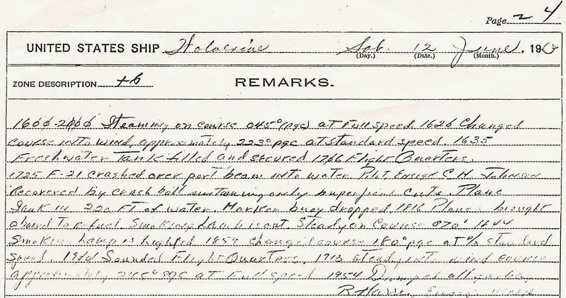 Page 24
UNITED STATES SHIP Wolverine Sat. 12 June, 19
(Day.) (Date.) (Month.)
ZONE DESCRIPTION +6 REMARKS.
1600-2000 Steaming on course 045° (pgc) at Full speed. 1626 Changed
course into wind, approximately 223° pgc at standard speed. 1635
Freshwater Tank filled and secured 1706 Flight Quarters.
1725 F-21 crashed over port beam into water. Pilot, Ensign C.H. Johnson
Recovered by crash boat sustaining only superficial Cuts. Plane
Sank in 220 FT of water. Marker buoy dropped. 1816 Plane brought
aboard for fuel. Smoking Lamp is out. Steady on Course 070° 1844
Smoking Lamp is lighted 1859 Changed course 180° pgc at 2/3 standard
Speed. 1904 Sounded Flight Quarters. 1913 Steady int wind course
approximately 245° pgc at Full speed 1954 Dumped all garbage